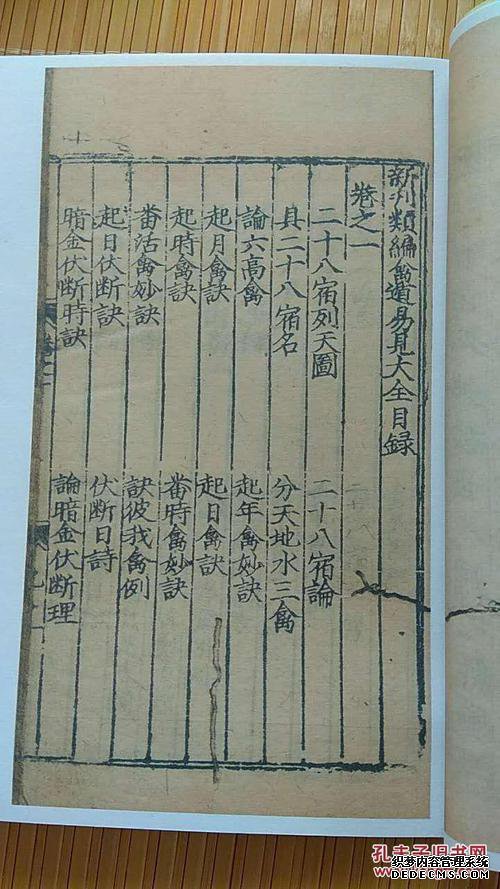 新刊類編禽遁易見大全目録
卷之一
二十八宿列天圖 二十八宿論
具二十八宿名 分天地水三禽
論六高禽 起年禽妙訣
起月禽訣 起日禽訣
起時禽訣 番時禽妙訣
番活禽妙訣 訣彼我禽例
起日伏斷訣 伏斷日詩
暗金伏斷時訣 論暗金伏斷理
孔夫子旧书网
织梦内容管理系统
DEDECMS.COM